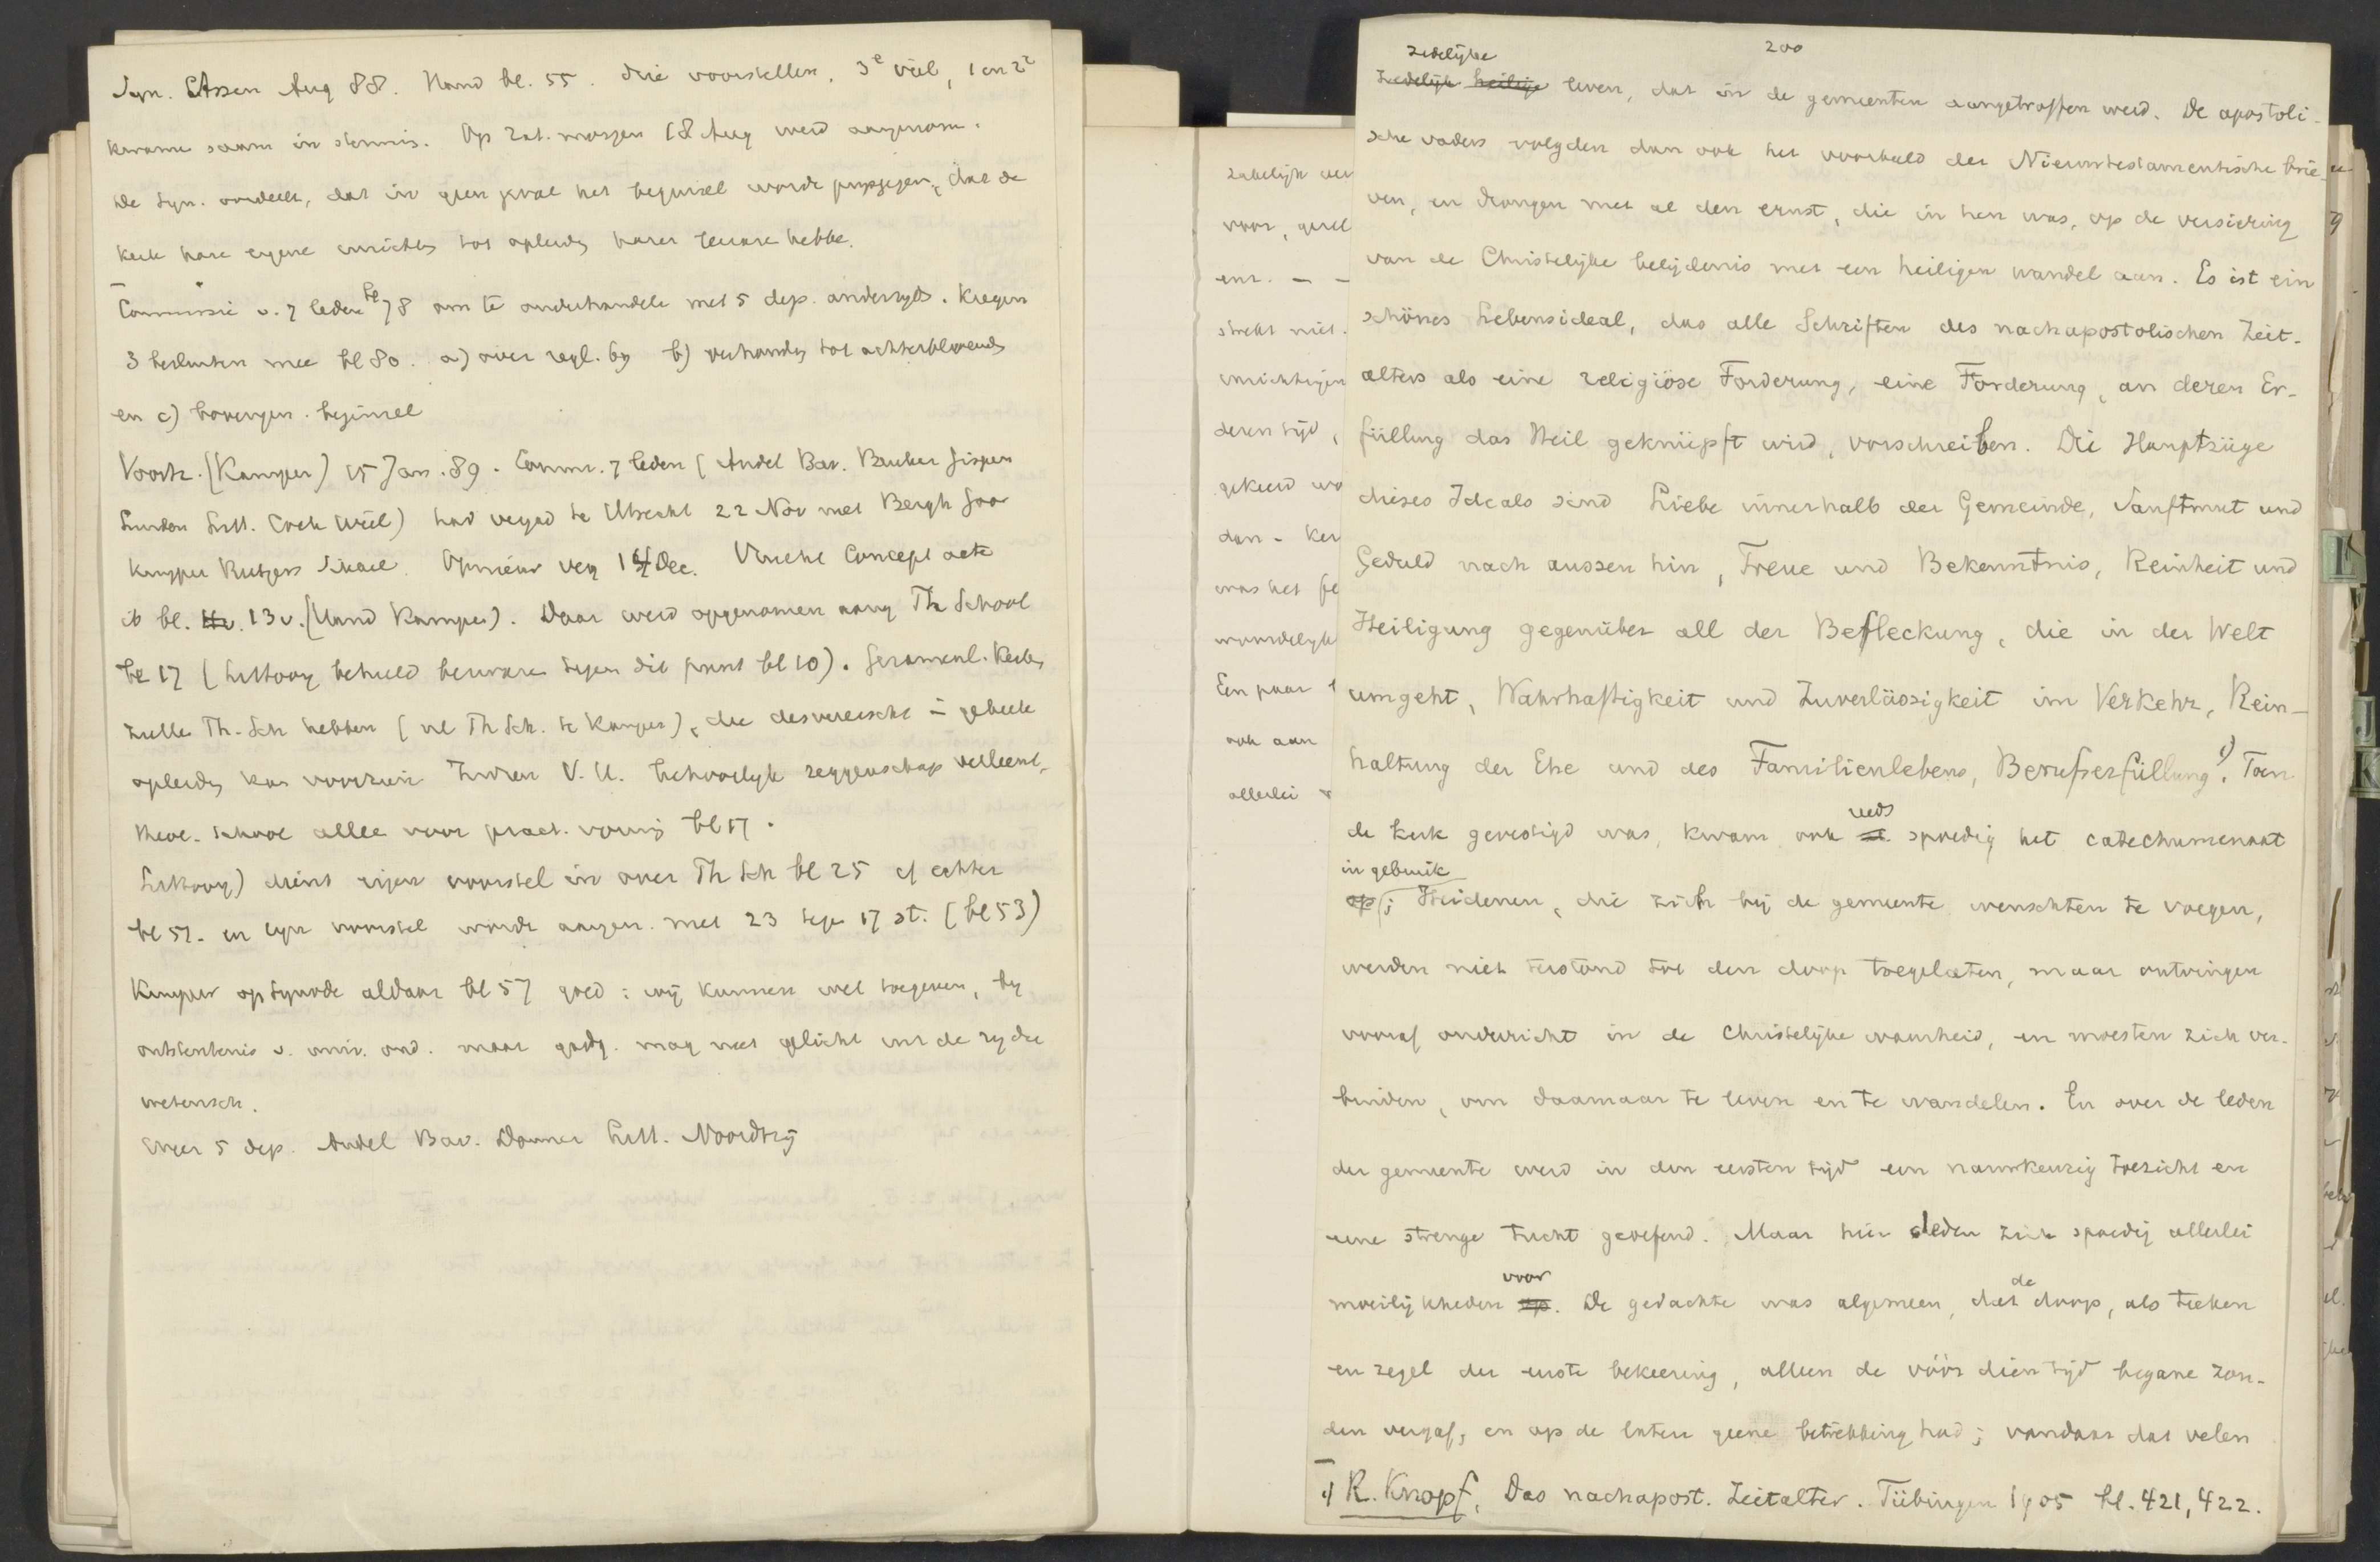 Syn. Assen Aug 88. Hand bl. 55. drie voorstellen. 3e viel, 1 en 2e
kwame saam in stemmis. Op Zat. morgen 18 Aug werd aangenom.
De Syn. oordeelt, dat in geen geval het beginsel worde prijsgegeven, dat de
kerk hare eigene inrichtg tot opleidg harer leerare hebbe.
Commissie v. 7 leden bl 78 om te onderhandele met 5 dep. anderzyds. Kregen
3 besluiten mee bl 80. a) over regl. by b) verhoudg tot achterblyvends
en c) bovengen. beginsel
Voorh. (Kampen) 15 Jan. 89. Comm. 7 leden (Andel Bav. Beuker Gispen
Lindon Litt. Cock Wiel) had vergad te Utrecht 22 Nov met Bergh Goor
Kuyper Rutgers Sikkel. Opnieuw verg 14 Dec. Concept acte
ib bl. 13 v. (Hand Kampen). Daar werd opgenomen aang Th School
bl 17 (Littooy behield bezware tegen dit punt bl 10). Gezamenl. kerke
zulle Th. Sch hebben (nl Th Sch. te Kampen), die desvereischt in geheele
opleidg kan voorzien Indien V. U. behoorlyk zeggenschap verleent,
theol. school allee voor pract. vormg bl 17.
Littooy) dient eigen voorstel in over Th Sch bl 25 cf echter
bl 51. en eyn voorstel worde aangen. met 23 tege 17 st. (bl 53)
Kuyper op Synode aldaar bl 57 goed: wij kunnen wel toegeven, by
ontstentenis v. univ. ond. maar godg. mag niet gelicht uit de ry der
wetensch.
weer 5 dep. Andel Bav. Donner Litt. Noordtzij
zakelijk ver
voor, gesel
enz. – –
strekt niet.
inrichtingen
deren tijd,
gekeerd wo
dan – ker
was het ge
wonderlyke
Een paar
ook aan
allerlei
200
zedelijke
Zedelijk heilige leven, dat in de gemeenten aangetroffen werd. De apostoli-
sche vaders volgden dan ook het voorbeeld der Nieuwtestamentische brie-
ven, en drongen met al den ernst, die in hen was, op de versiering
van de Christelijke belijdenis met een heiligen wandel aan. Es ist ein
schönes Lebensideal, das alle Schriften des nachapostolischen Zeit-
alters als eine religiöse Forderung, eine Forderung, an deren Er-
füllung das Heil geknüpft wird, vorschreiben. Die Hauptzüge
dieses Ideals sind Liebe innerhalb der Gemeinde, Sanftmut und
Geduld nach aussen hin, Treue und Bekenntnis, Reinheit und
Heiligung gegenüber all der Befleckung, die in der Welt
umgeht, Wahrhaftigkeit und Zuverlässigkeit im Verkehr, Rein-
haltung der Ehe und des Familienlebens, Berufserfüllung 1). Toen
de kerk gevestigd was, kwam ook reeds spoedig het catechumenaat
in gebruik
op; Heidenen, die zich bij de gemeente wenschten te voegen,
werden niet terstond tot den doop toegelaten, maar ontvingen
vooraf onderricht in de Christelijke waarheid, en moesten zich ver-
binden, om daarnaar te leven en te wandelen. En over de leden
der gemeente werd in den eersten tijd een nauwkeurig toezicht en
eene strenge tucht geoefend. Maar hier deden zich spoedig allerlei
moeilijkheden op voor. De gedachte was algemeen, dat de doop, als teeken
en zegel der eerste bekeering, alleen de vóór dien tijd begane zon-
den vergaf, en op de latere geene betrekking had; vandaar dat velen
1) R. Knopf, Das nachapost. Zeitalter. Tübingen 1905 bl. 421, 422.